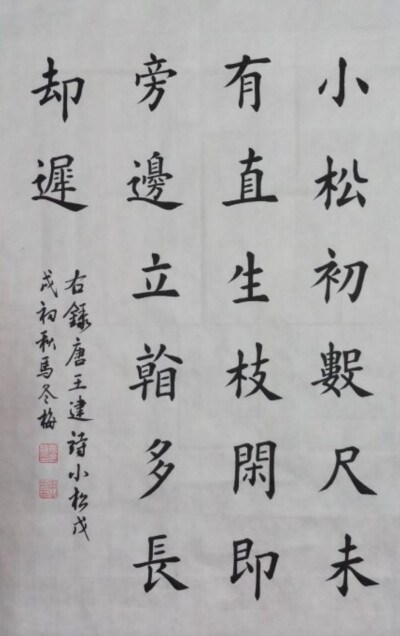 小松初數尺未
有直生枝閑即
旁邊立看多長
却遲
右錄唐王建詩小松戊
戌初秋馬冬梅